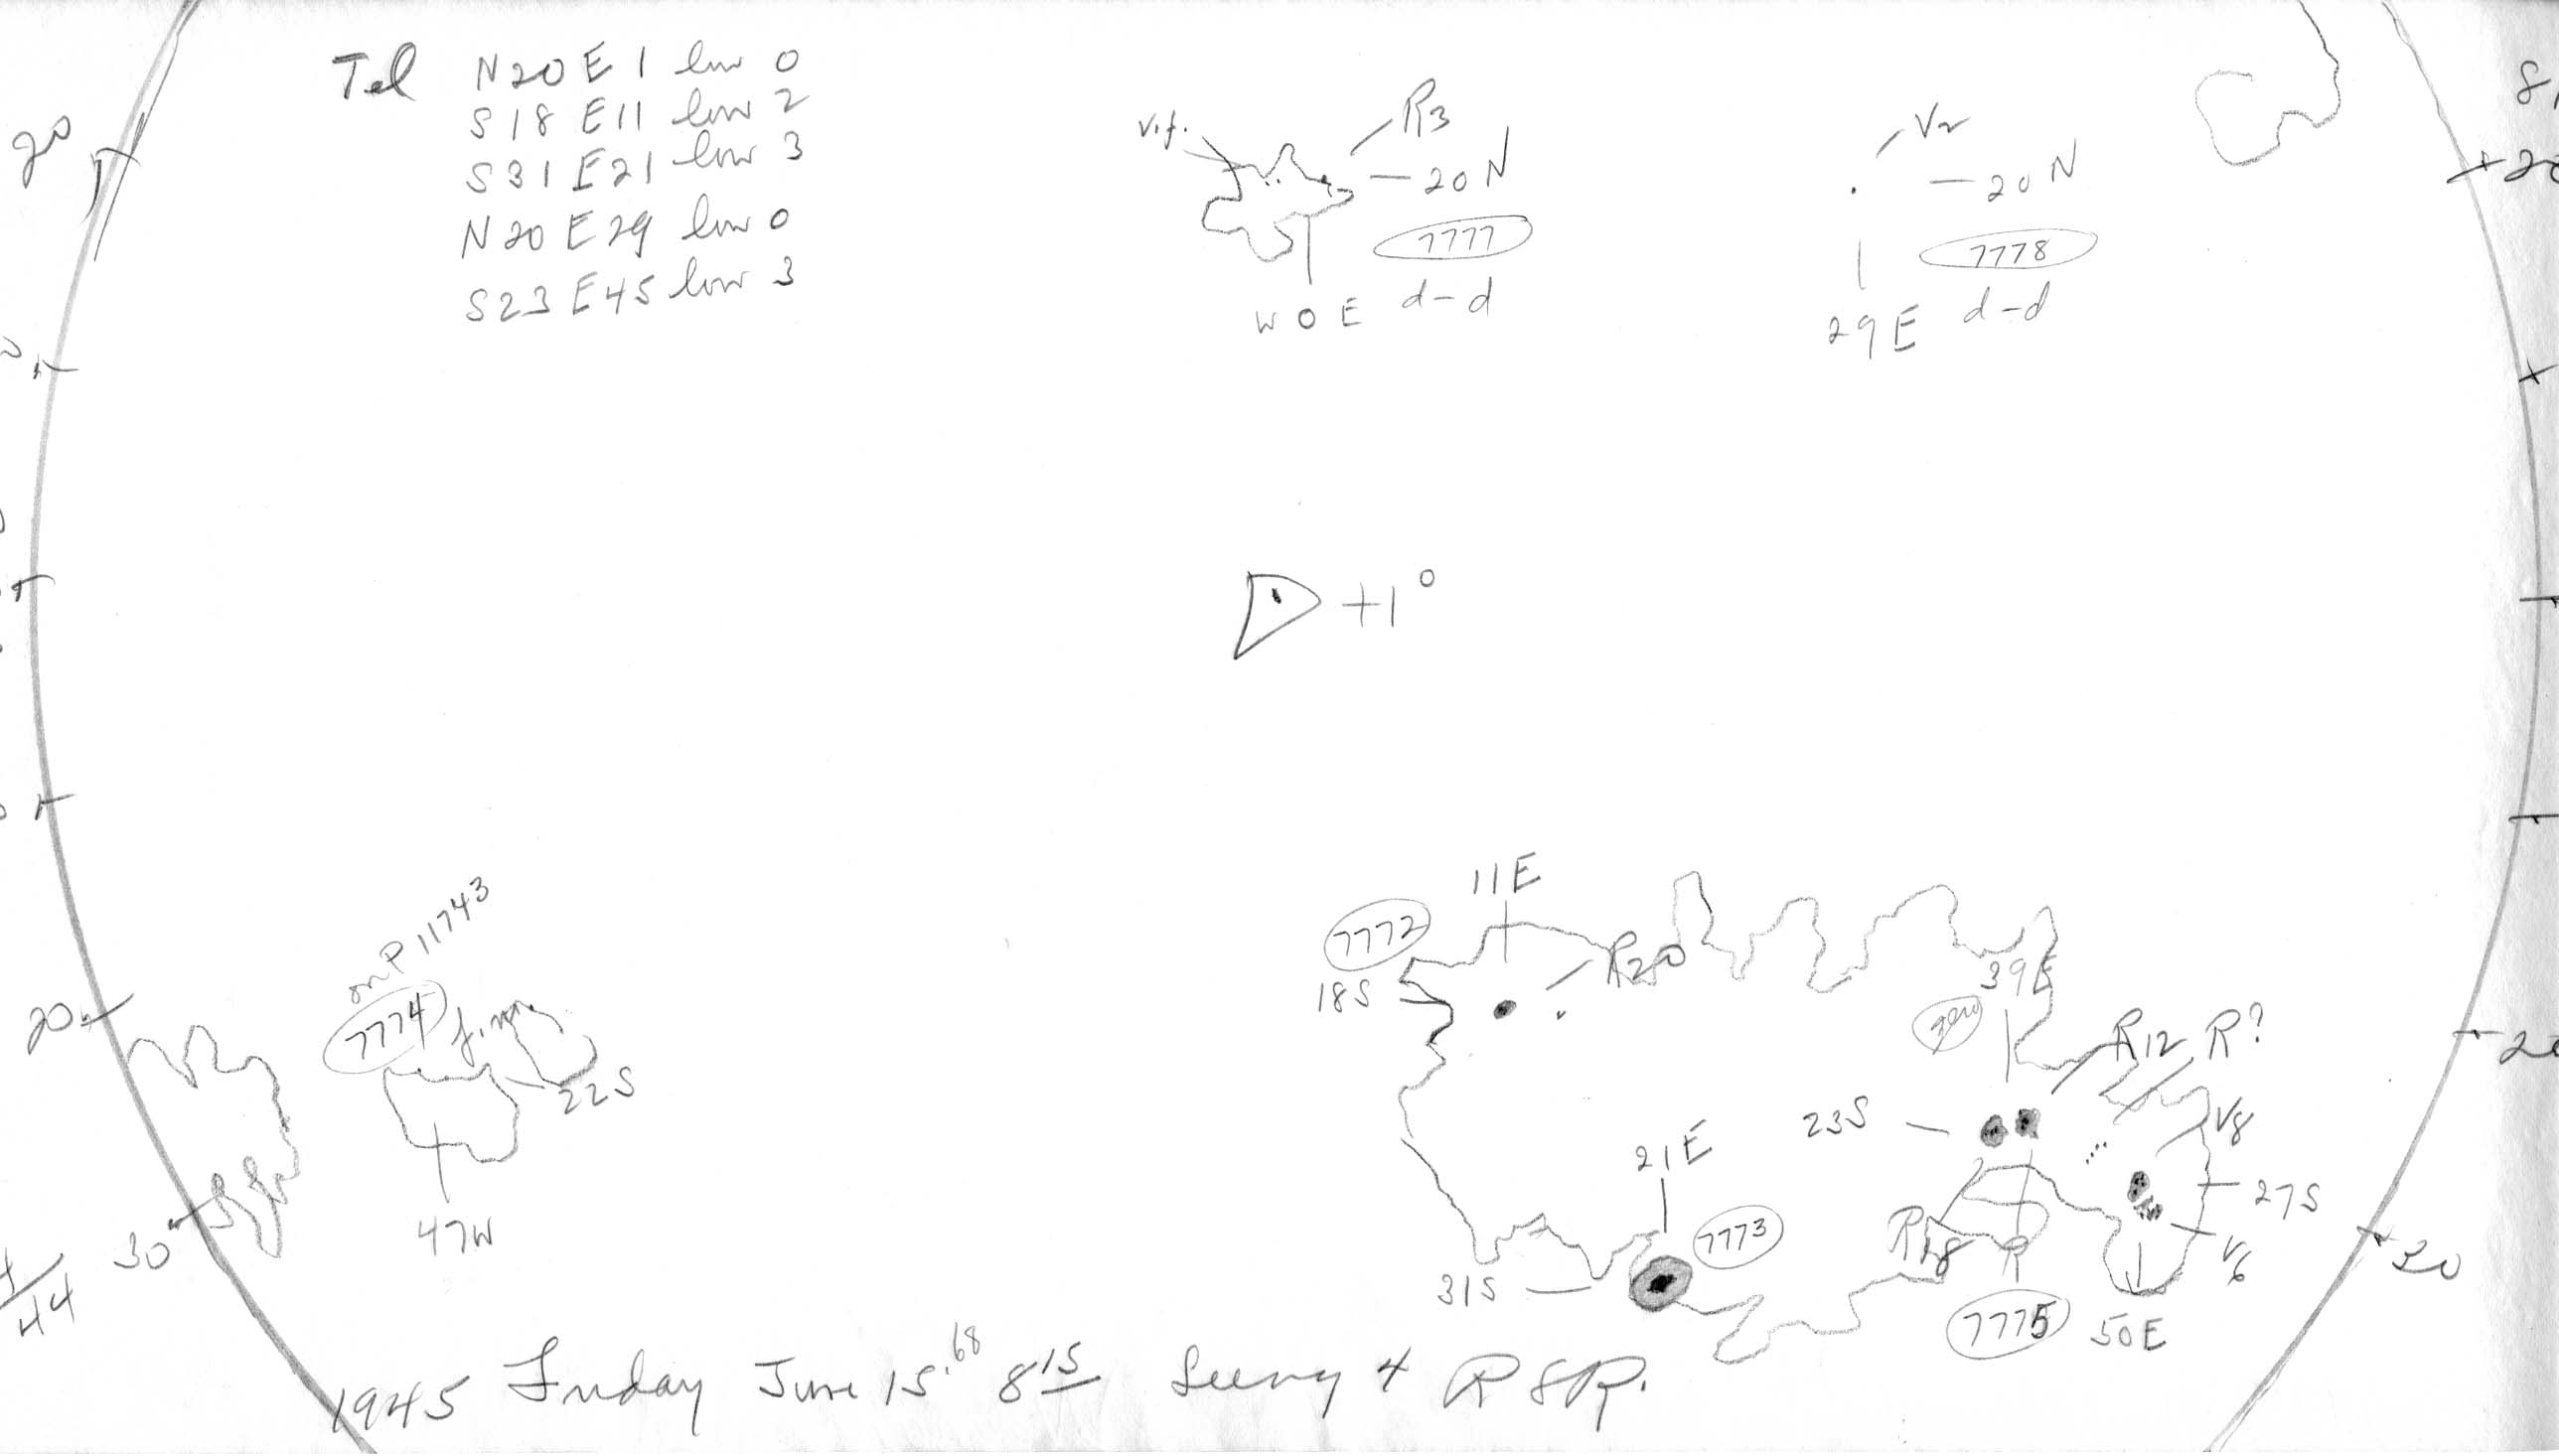 Tel N20 E 1 low 0
S18 E11 low 2
S31 E21 low 3
N20 E29 low 0
S23 E45 low 3
20
v.f.
R3
20 N
7777
W 0 E d-d
V2
20 N
7778
29 E d-d
+1°
on P 11743
7774
22S
47W
20
30
44
11E
7772
R20
18S
39E
R12 R?
23S
V8
21E
27S
7773
R18 R
V6
31S
7775 50E
20
30
1945 Friday June 15.68 8 15 Seeing 4 R S R.